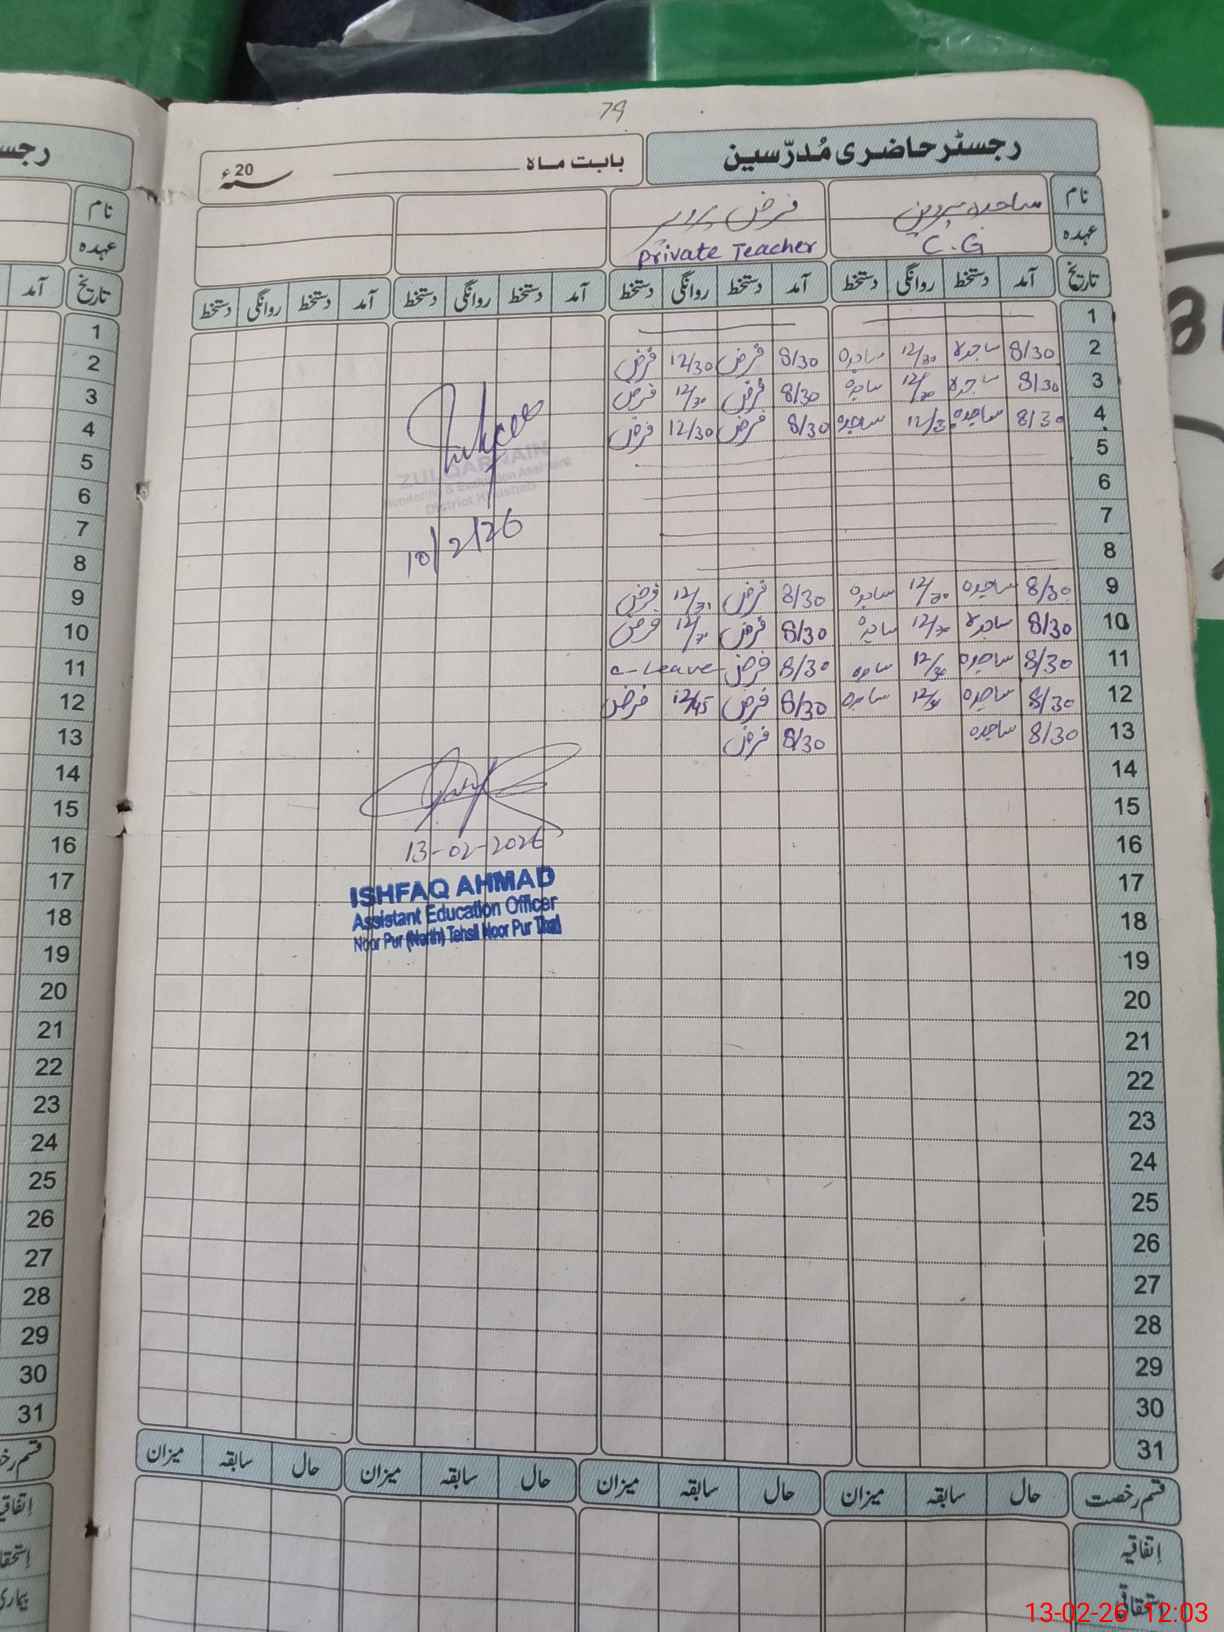 79
رجسٹر حاضری مُدرّسین
بابت ماہ ــــــ سنہ 20ء
نام ساجدہ پروین فرض
عہدہ C.G Private Teacher
تاریخ آمد دستخط روانگی دستخط آمد دستخط روانگی دستخط آمد دستخط روانگی دستخط آمد دستخط روانگی دستخط
1
2 8/30 ساجدہ 12/30 ساجدہ 8/30 فرض 12/30 فرض
3 8/30 ساجدہ 12/30 ساجدہ 8/30 فرض 12/30 فرض
4 8/30 ساجدہ 12/30 ساجدہ 8/30 فرض 12/30 فرض
5
6
7
8
9 8/30 ساجدہ 12/30 ساجدہ 8/30 فرض 12/30 فرض
10 8/30 ساجدہ 12/30 ساجدہ 8/30 فرض 12/30 فرض
11 8/30 ساجدہ 12/30 ساجدہ 8/30 فرض Leave
12 8/30 ساجدہ 12/30 ساجدہ 8/30 فرض 12/45 فرض
13 8/30 ساجدہ 8/30 فرض
14
15
16
17
18
19
20
21
22
23
24
25
26
27
28
29
30
31
ZULQARNAIN
Monitoring & Evaluation Assistant
District KHUSHAB
10/2/26
13-02-2026
ISHFAQ AHMAD
Assistant Education Officer
Noor Pur (North) Tehsil Noor Pur Thal
قسم رخصت حال سابقہ میزان حال سابقہ میزان حال سابقہ میزان حال سابقہ میزان
اِتفاقیہ
اِستحقاقی
نام
عہدہ
تاریخ آمد
1
2
3
4
5
6
7
8
9
10
11
12
13
14
15
16
17
18
19
20
21
22
23
24
25
26
27
28
29
30
31
13-02-26 12:03